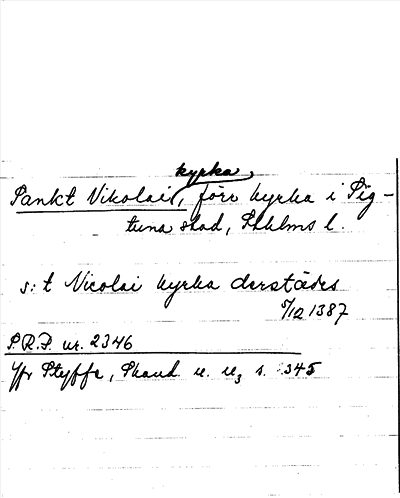 kyrka,
Sankt Nikolai, förr kyrka i Sig-
tuna stad, Sthlms l.
s:t Nicolai kyrka darstædes
5/12 1387
S.R.P. nr. 2346
Jfr Styffe, Skand. u. u3 s. 345